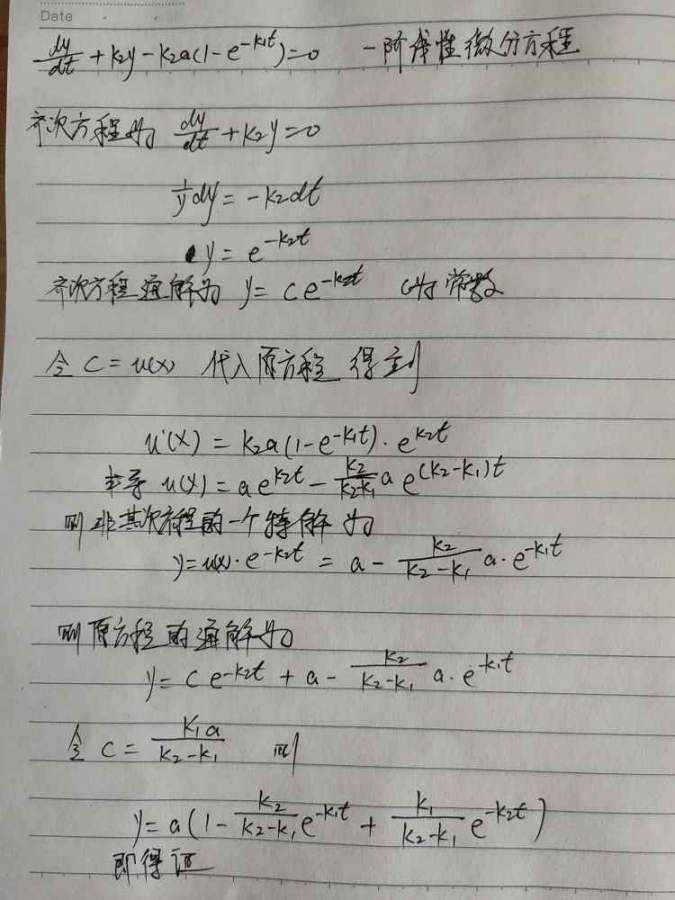 Date
dy/dt + k₂y - k₂a(1 - e^{-k₁t}) = 0 一阶线性微分方程
齐次方程为 dy/dt + k₂y = 0
1/y dy = -k₂dt
y = e^{-k₂t}
齐次方程通解为 y = ce^{-k₂t} C为常数
令 C = u(x) 代入原方程 得到
u'(x) = k₂a(1 - e^{-k₁t}) · e^{k₂t}
求导 u(x) = ae^{k₂t} - k₂/(k₂-k₁) a e^{(k₂-k₁)t}
则非其次方程的一个特解为
y = u(x) · e^{-k₂t} = a - k₂/(k₂-k₁) a · e^{-k₁t}
则原方程的通解为
y = ce^{-k₂t} + a - k₂/(k₂-k₁) a · e^{-k₁t}
令 c = k₁a/(k₂-k₁) 则
y = a(1 - k₂/(k₂-k₁) e^{-k₁t} + k₁/(k₂-k₁) e^{-k₂t})
即得证